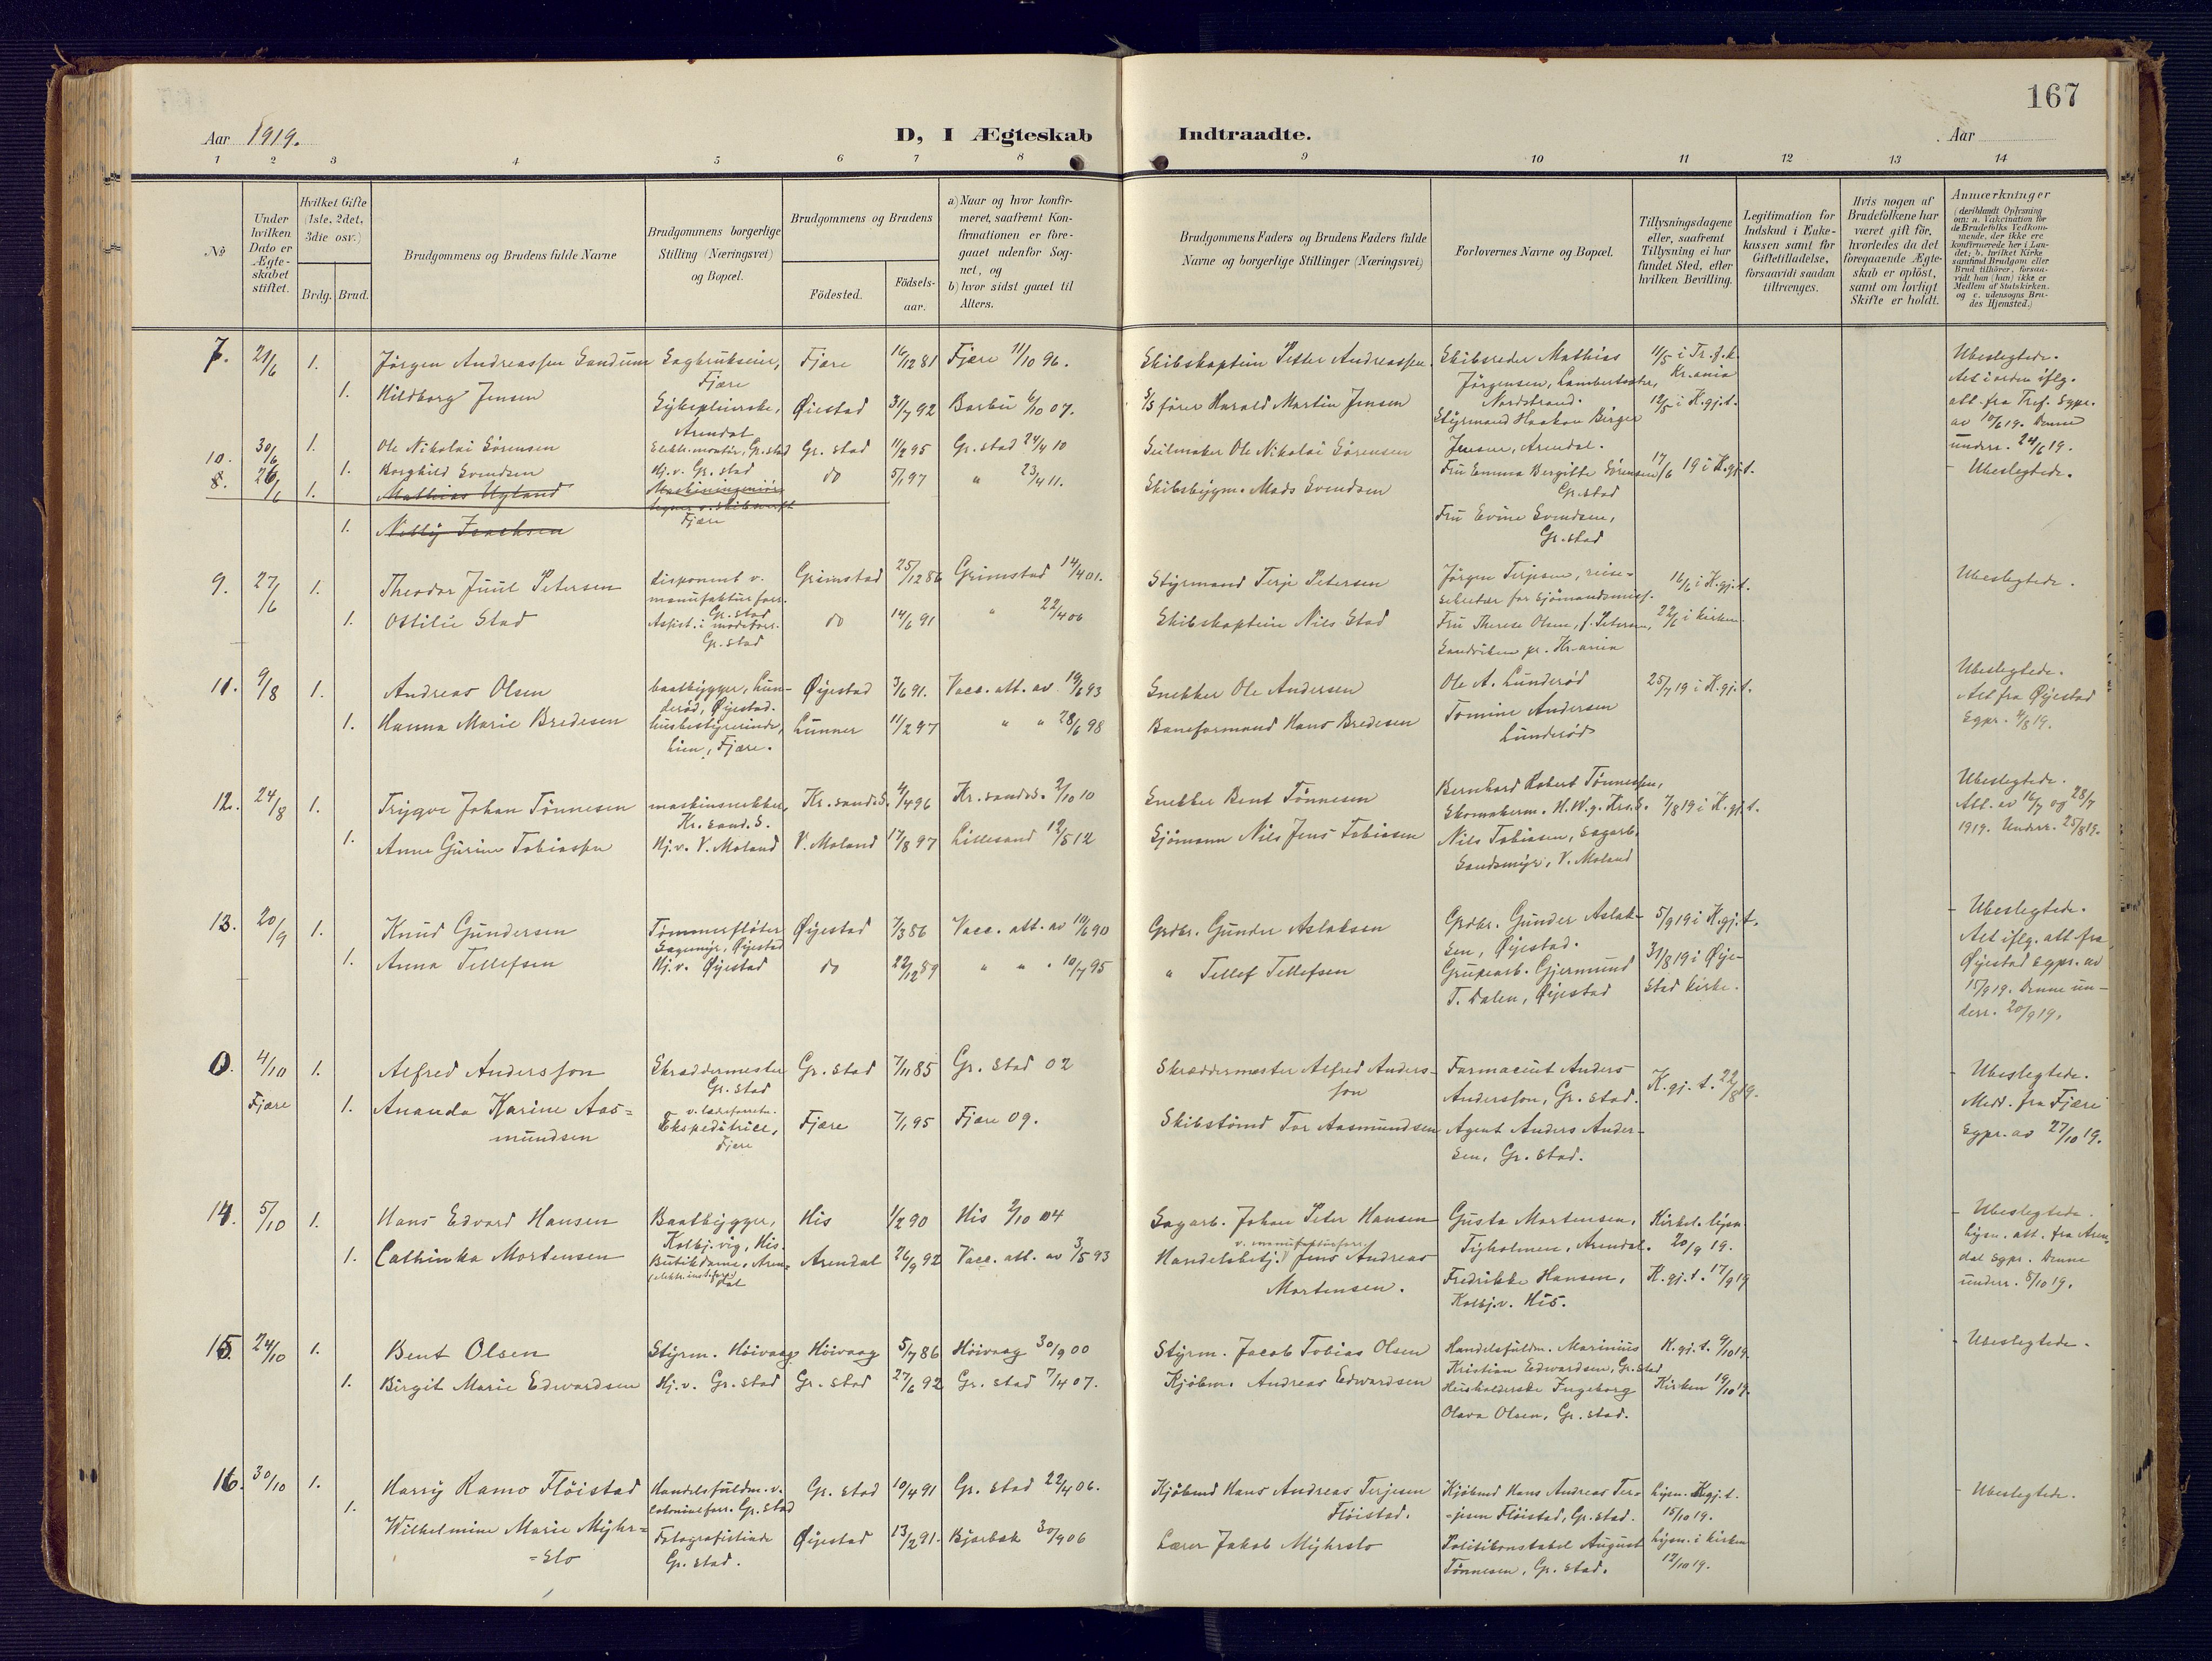 167
Aar 1919.
D, I Ægteskab
Indtraadte.
Aar
1 2 3 4 5 6 7 8 9 10 11 12 13 14
No
Under hvilken Dato er Ægteskabet stiftet.
Hvilket Gifte (1ste, 2det, 3die osv.)
Brdg. Brud.
Brudgommens og Brudens fulde Navne
Brudgommens borgerlige Stilling (Næringsvei) og Bopæl.
Brudgommens og Brudens
Födested.
Födsels-aar.
a) Naar og hvor konfirmeret, saafremt Konfirmationen er foregaaet udenfor Sognet, og
b) hvor sidst gaaet til Alters.
Brudgommens Faders og Brudens Faders fulde Navne og borgerlige Stillinger (Næringsvei)
Forlovernes Navne og Bopæl.
Tillysningsdagene eller, saafremt Tillysning ei har fundet Sted, efter hvilken Bevilling.
Legitimation for Indskud i Enkekassen samt for Giftetilladelse, forsaavidt saadan tiltrænges.
Hvis nogen af Brudefolkene har været gift för, hvorledes da det foregaaende Ægteskab er oplöst, samt om lovligt Skifte er holdt.
Anmærkninger
(deriblandt Oplysning om: a. Vakcination for de Brudefolks Vedkommende, der ikke ere konfirmerede her i Landet; b. hvilket Kirkesamfund Brudgom eller Brud tilhörer, forsaavidt han (hun) ikke er Medlem af Statskirken. og c. udensogns Brudes Hjemsted.)
7. 21/6 1. Jörgen Andreassen Sandum Sagbrukseier, Fjære Fjære 16/12 81 Fjære 11/10 96. Skibskaptein Petter Andreassen. Skibsreder Mathias Jörgensen, Lambertseter, Nordstrand. 11/5 i Tr.f.k. Kr.ania
1. Hildborg Jensen Sykepleierske, Arendal Øiestad 31/7 92 Barbu 6/10 07. S/S förer Harald Martin Jensen Styrmand Haakon Birger Jensen, Arendal. 12/5 i K.gj.t.
Ubeslegtede.
Alt i orden iflg.
att. fra Tref. Sgpr.
av 10/6 19. Denne
underr. 24/6 19.
10. 30/6 1. Ole Nikolai Sörensen Elektr.montör, Gr.stad Gr. stad 11/2 95 Gr. stad 24/4 10 Seilmaker Ole Nikolai Sörensen Fru Emma Bergitte Sörensen Gr.stad 17/6 19 i K.gj.t. - Ubeslegtede.
1. Borghild Svendsen Hj.v. Gr. stad do 5/1 97 " 23/4 11. Skibsbygm. Mads Svendsen Fru Evine Svendsen, Gr.stad
8. 26/6 1. Mathias Ugland Maskiningeniör Fjære
1. Nelly Isachsen
9. 27/6 1. Theodor Juul Petersen disponent v. manufakturforr. Gr.stad Grimstad 25/12 86 Grimstad 14/4 01. Styrmand Terje Petersen Jörgen Terjesen, reise-
sekretær for Sjömandsmisj. 16/6 i K.gj.t. Ubeslegtede.
1. Ottilie Stad Assist. i modeforr. Gr.stad do 14/6 91 " 22/4 06 Skibskaptein Nils Stad Fru Therese Olsen, f. Petersen, Sandviken pr. Kr.ania 22/6 i kirken.
11. 9/8 1. Andreas Olsen baatbygger, Lun-
deröd, Øiestad. Øyestad 3/6 91. Vacc. att. av 19/6 93 Snekker Ole Andersen Ole A. Lunderöd 25/7 19 i K.gj.t.
1. Hanna Marie Bredesen husbestyrerinde, Lien, Fjære. Lunner 11/2 97 " " 28/6 98 Baneformand Hans Bredesen Tomine Andersen Lunderöd
Ubeslegtede.
Alt fra Øyestad
Sgpr. 4/8 19.
12. 24/8 1. Trygve Johan Tönnesen maskinsnekker, Kr.sand.S. Kr.sand.S. 4/4 96 Kr.sand.S. 2/10 10 Snekker Bent Tönnesen Bernhard Robert Tönnessen, Skomakerm. H.W.g. Krs.S. 7/8 19 i K.gj.t.
1. Anne Gurine Tobiassen Hj.v. V. Moland V. Moland 17/8 97 Lillesand 12/5 12 Sjömann Nils Jens Tobiasen Nils Tobiasen, Sagarb. Sandsmyr, V. Moland
Ubeslegtede.
Att. av 16/7 og 28/7
1919. Underr. 25/8 19.
13. 20/9 1. Knud Gundersen Tömmerflöter Øyestad Øyestad 7/3 86 Vacc. att. av 19/6 90 Grdbr. Gunder Aslaksen Grdbr. Gunder Aslak-
sen, Øyestad. 5/9 19 i K.gj.t.
1. Anna Tellefsen Hj.v. Øyestad do 22/12 89 " " " 10/7 95 " Tellef Tellefsen Grubearb. Gjermund T. Dalen, Øyestad 31/8 19 i Øye-
stad kirke.
- Ubeslegtede.
Alt iflg. att. fra
Øyestad Sgpr. av
15/9 19. Denne un-
derr. 20/9 19.
0. 4/10 Fjære 1. Alfred Andersson Skræddermester Gr.stad Gr. stad 7/11 85 Gr. stad 02 Skræddermester Alfred Anders-
son Farmaceut Anders Andersson, Gr. stad. K.gj.t. 22/8 19.
1. Ananda Karine Aas=
mundsen Ekspeditrice, Fjære Fjære 7/1 95 Fjære 09. Skibstömd Tor Aasmundsen Agent Anders Ander-
sen, Gr. stad.
- Ubeslegtede.
Medd. fra Fjære
Sgpr. av 27/10 19.
14. 5/10 1. Hans Edvard Hansen Baatbygger, Kolbj.vig, His. His 1/2 90 His 2/10 04 Sagarb. Johan Peter Hansen Gusta Mortensen, Tyholmen, Arendal. Kirkel. lysn. 20/9 19.
1. Cathinka Mortensen Butikdame, Aren-
dal Arendal 26/9 92 Vacc. att. av 3/5 93 Handelsbetj. v. manufakturforr. Jens Andreas Mortensen. Fredrikke Hansen, Kolbj.v. His. K.gj.t. 17/9 19
- Ubeslegtede.
Lysn. att. fra Aren-
dal Sgpr. Denne
underr. 8/10 19.
15. 24/10 1. Bent Olsen Styrm. Höivaag Höivaag 5/7 86 Höivaag 30/9 00 Styrm. Jacob Tobias Olsen Handelsfuldm. Marinius Kristian Edwardsen, Gr.stad K.gj.t. 9/10 19. - Ubeslegtede.
1. Birgit Marie Edwardsen Hj.v. Gr. stad Gr. stad 27/6 92 Gr. stad 7/4 07. Kjöbm. Andreas Edwardsen Husholderske Ingeborg Olava Olsen, Gr. stad. Kirken 19/10 19.
16. 30/10 1. Harry Ramo Flöistad Handelsfuldm. v. Colonialforr. Gr. stad Gr. stad 10/4 91 Gr. stad 22/4 06. Kjöbmd Hans Andreas Terjesen Flöistad. Kjöbmd Hans Andreas Ter-
-jesen Flöistad, Gr.stad. Lysn. K.gj.t. 15/10 19. - Ubeslegtede.
1. Wilhelmine Marie Myhr=
=slo Fotografistinde Gr. stad. Øyestad 13/2 91. Bjorbæk 30/9 06 Lærer Jakob Myhrslo Politikonstabel August Tönnesen, Gr. stad. Lysn. i kirken 12/10 19.